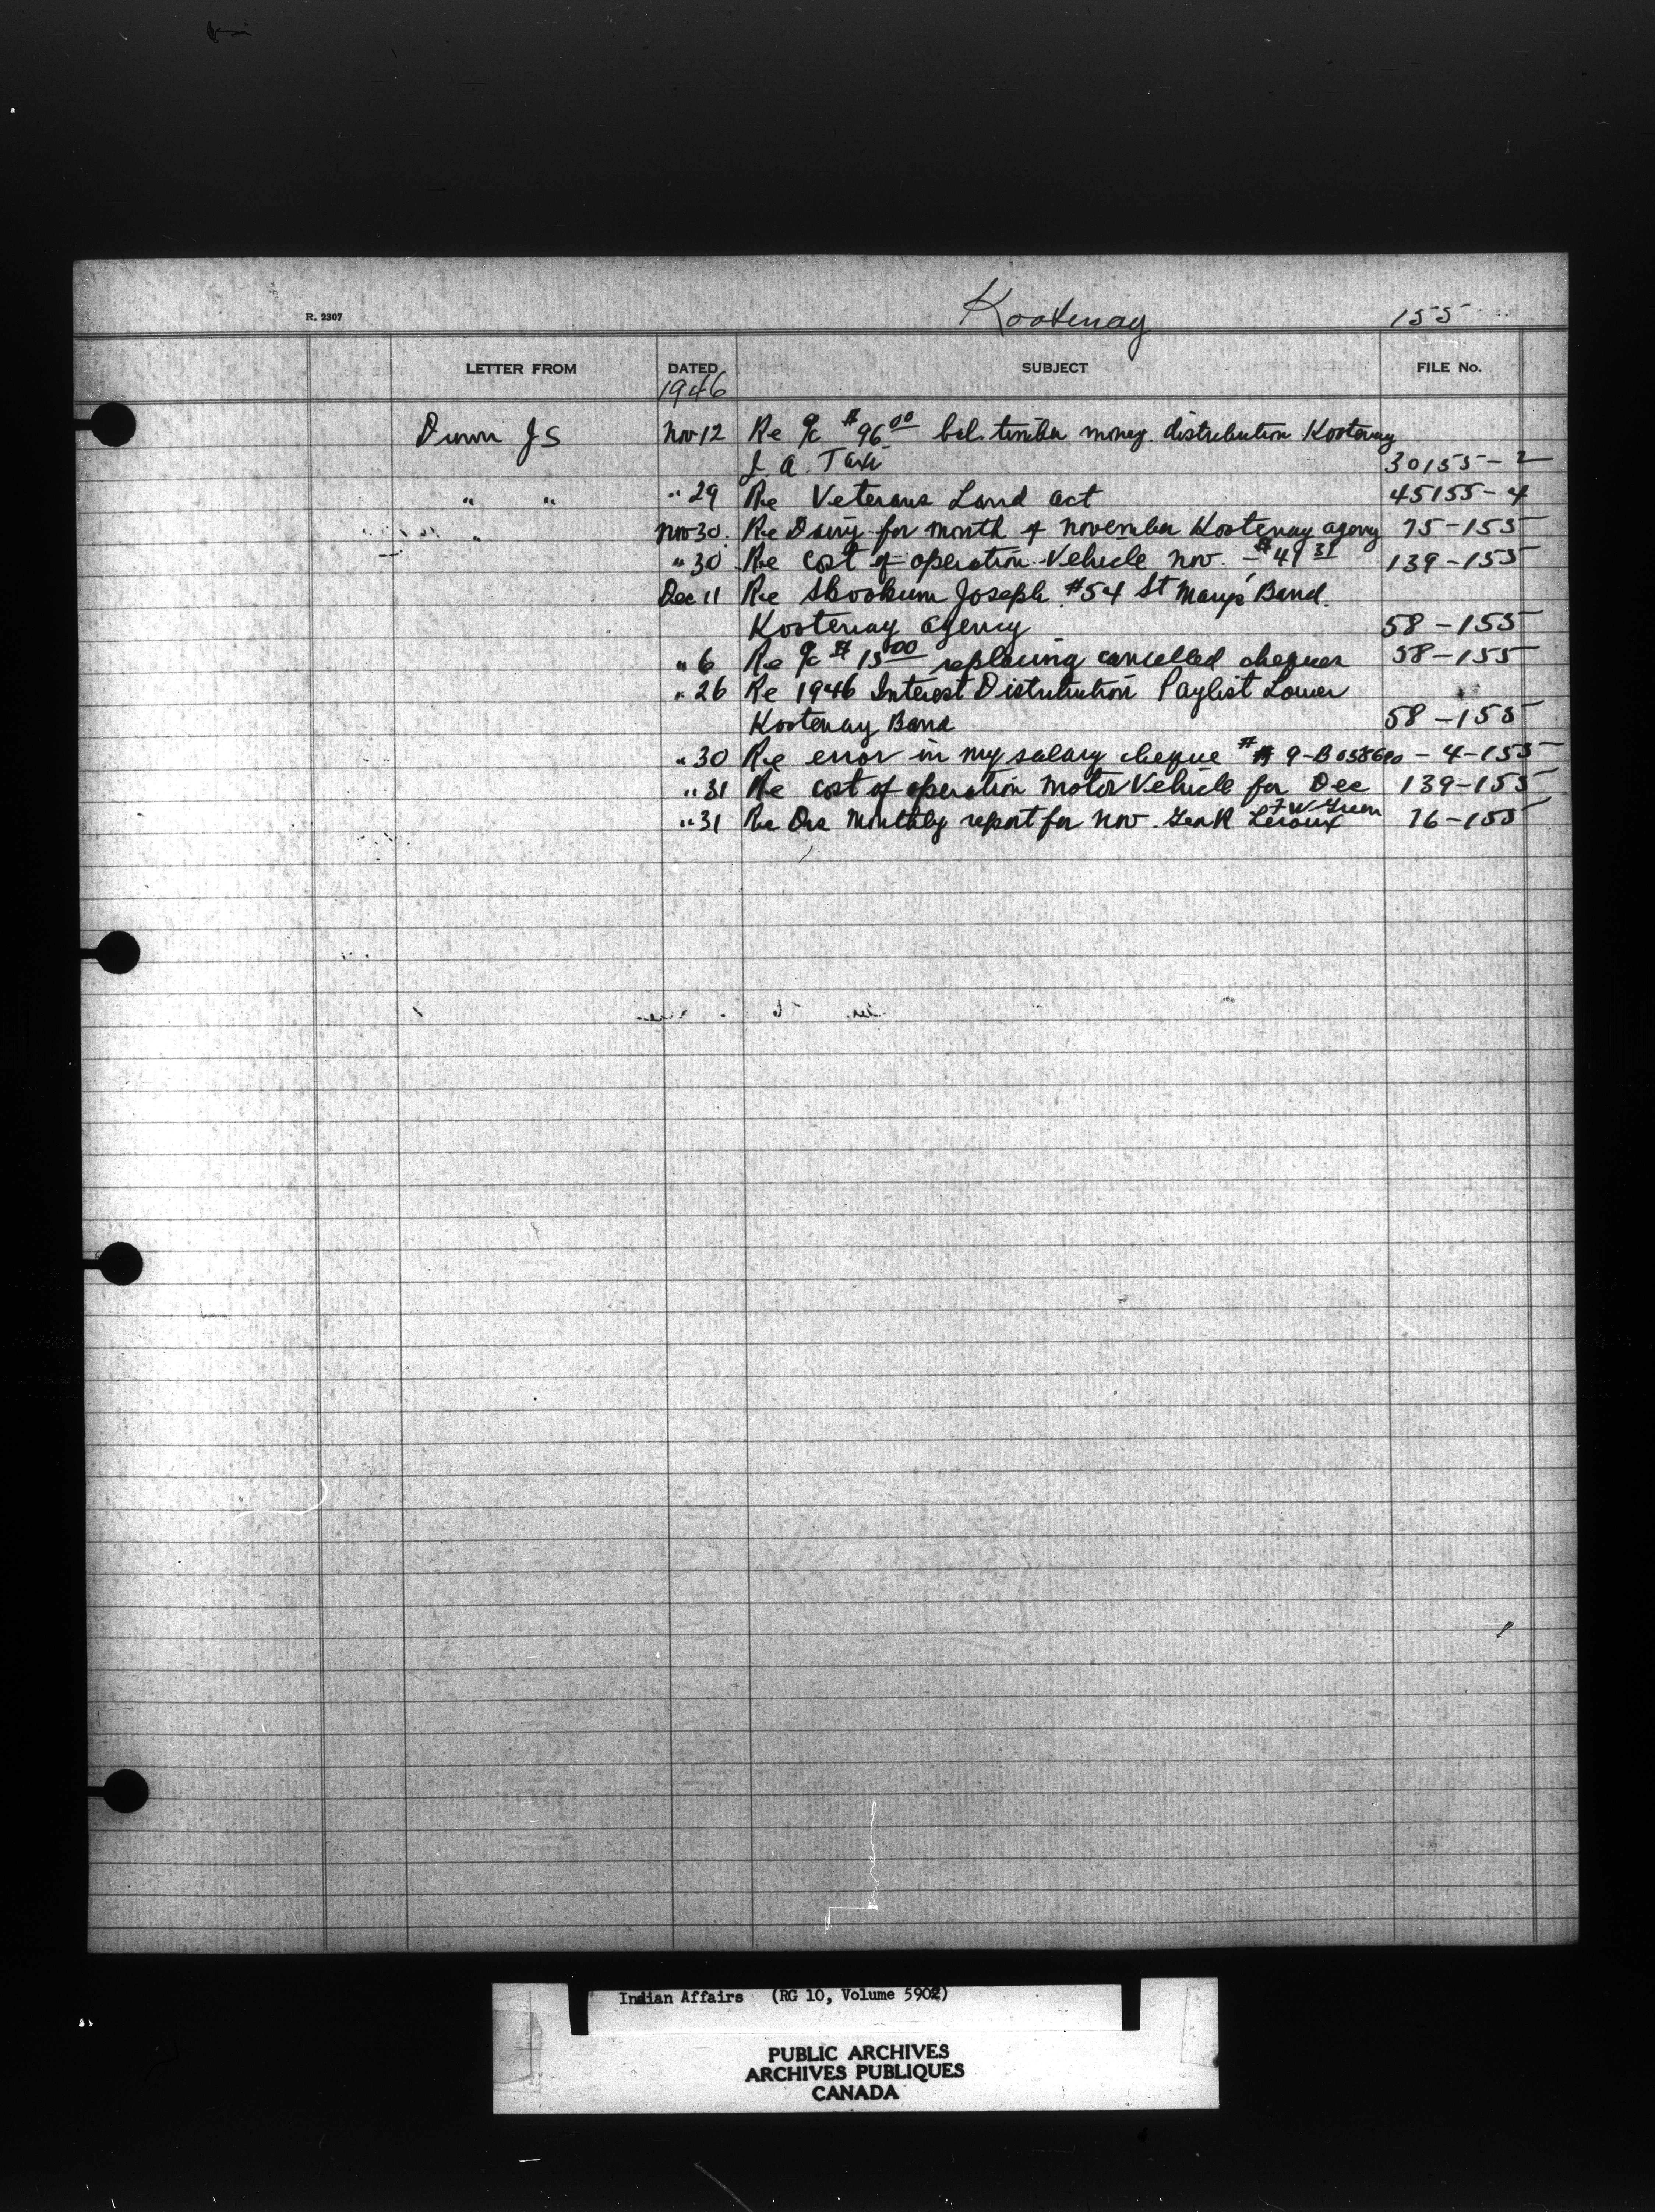 R. 2307 Kootenay 155
LETTER FROM DATED SUBJECT FILE No.
1946
Dunn JS Nov 12 Re o/c $96 00 bal. timber money distribution Kootenay
I. A. 30155-2
" " " 29 Re Veterans Land Act 45155-4
" Nov 30. Re Dairy for month of November Kootenay Agency 75-155
" 30 Re cost of operation Vehicle Nov. - $41 31 139-155
Dec 11 Re Skookum Joseph #54 St Mary's Band.
Kootenay Agency 58-155
" 6 Re o/c $15 00 replacing cancelled cheques 58-155
" 26 Re 1946 Interest Distribution Paylist Lower
Kootenay Band 58-155
" 30 Re error in my salary cheque # 9-B - 4-155
" 31 Re cost of operation Motor Vehicle for Dec 139-155
F W Green
" 31 Re Drs Monthly report for Nov. Leroux 76-155
Indian Affairs (RG 10, Volume 5902)
PUBLIC ARCHIVES
ARCHIVES PUBLIQUES
CANADA